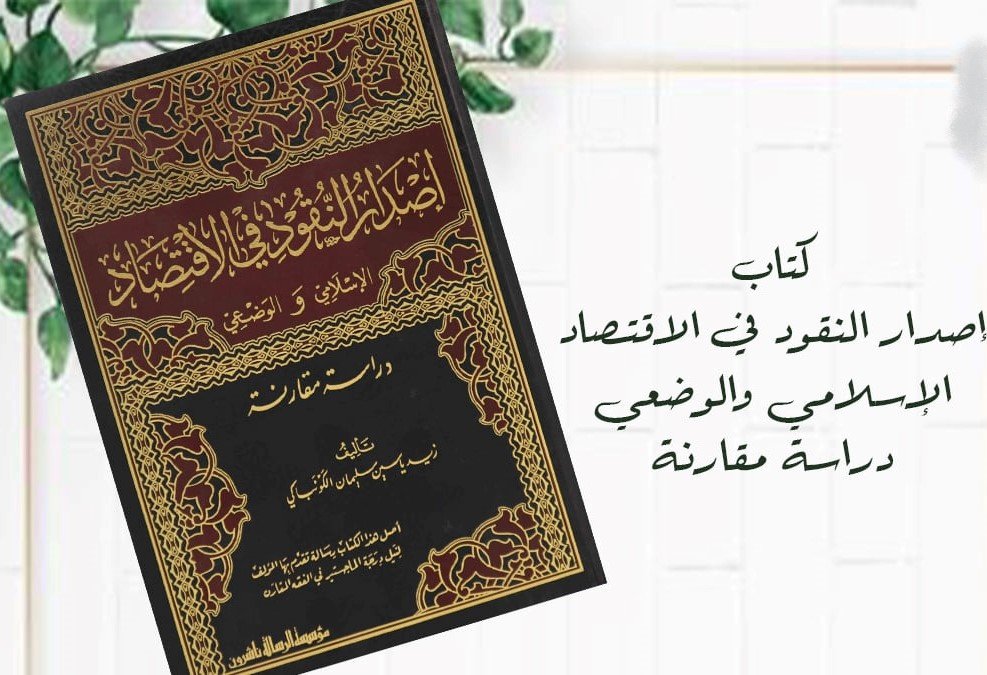 إصدار النقود في الاقتصاد
الإسلامي و الوضعي
دراسة مقارنة
تأليف
زيد ياسين سليمان
أصل هذا الكتاب رسالة تقدم بها المؤلف
لنيل درجة الماجستير في الفقه المقارن
مؤسسة الرسالة ناشرون
كتاب
إصدار النقود في الاقتصاد
الإسلامي والوضعي
دراسة مقارنة